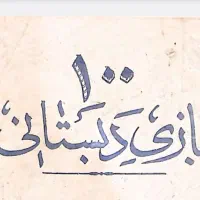 ۱۰۰
بازیِ دَبستانی